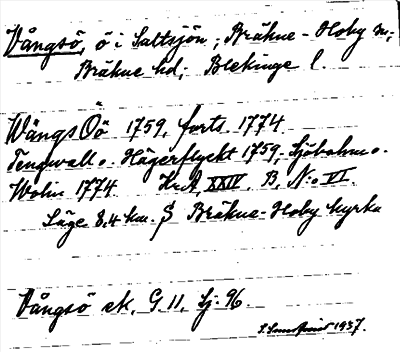 Vångsö, ö i Saltsjön; Bräkne-Hoby sn;
Bräkne hd; Blekinge l.
Wångs Öö 1759, forts. 1774
Tengwall o. Hägerflyckt 1759, Sjöbohm o.
Wolin 1774 KrA, XXIV. B. N:o VI.
Läge 8,4 km. S Bräkne-Hoby kyrka
Vångsö ek. G. 11, Sj. 96.
1937.